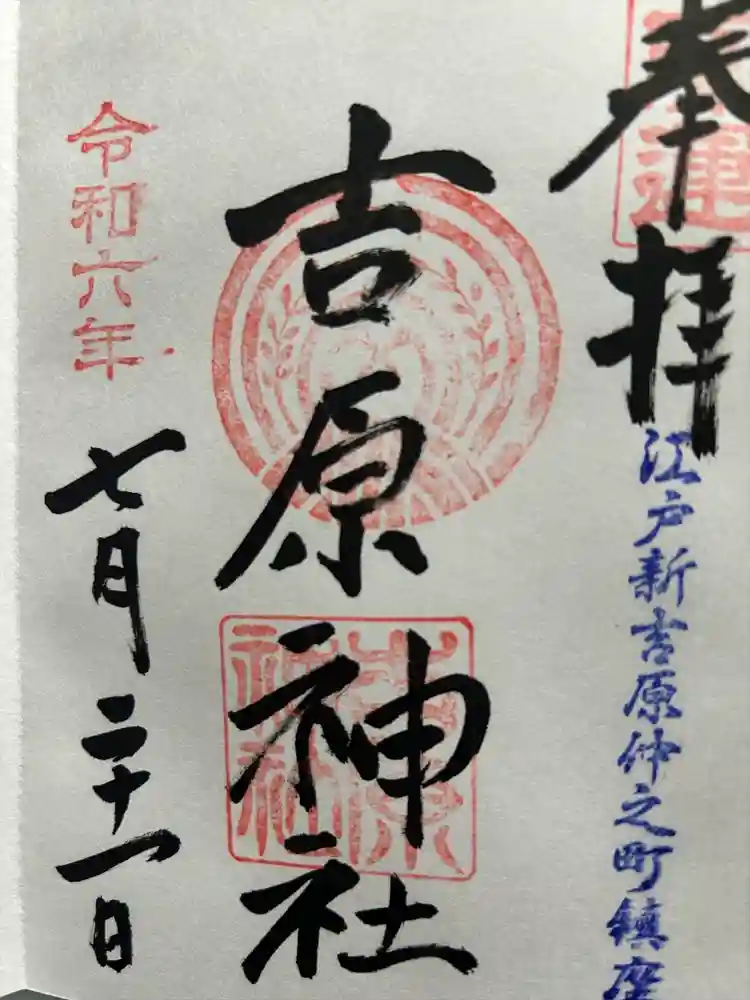 奉拝
江戸新吉原仲之町鎮座
吉原神社
令和六年
七月二十一日